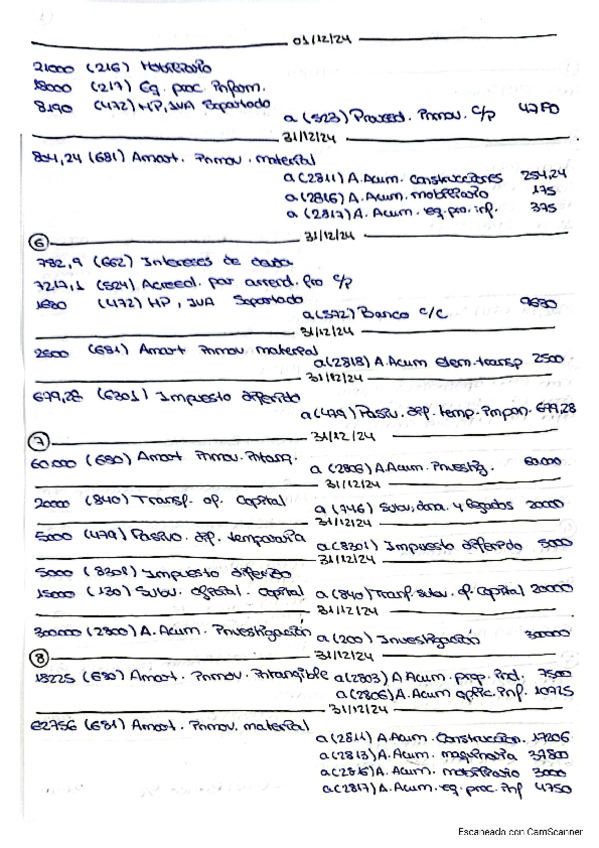 01/12/24
21000 (216) Mobiliario
18000 (217) Eq. proc. Inform.
8.190 (472) HP, IVA Soportado
a (523) Proveed. Inmov. c/p 47
31/12/24
804,24 (681) Amort. Inmov. material
a (2811) A. Acum. Construcciones 254,24
a (2816) A. Acum. mobiliario 175
a (2817) A. Acum. eq. pro. inf. 375
6 31/12/24
782,9 (662) Intereses de deuda
7217,1 (524) Acreed. por arrend. fro c/p
1680 (472) HP, IVA Soportado
a (572) Banco c/c 9680
31/12/24
2500 (681) Amort Inmov. material
a (2818) A. Acum elem. transp 2500
31/12/24
679,28 (6301) Impuesto diferido
a (479) Pasiv. dif. temp. impon. 679,28
7 31/12/24
60.000 (680) Amort Inmov. Intang.
a (2806) A. Acum. Investig. 60.000
31/12/24
20000 (840) Transf. of. Capital
a (746) Subv, dona. y legados 20000
31/12/24
5000 (479) Pasivo. dif. temporaria
a (8301) Impuesto diferido 5000
31/12/24
5000 (8301) Impuesto diferido
15000 (130) Subv. oficial. Capital
a (840) Tranf. subv. of. Capital 20000
31/12/24
300000 (2800) A. Acum. Investigación
a (200) Investigación 300000
8 31/12/24
18225 (680) Amort. Inmov. Intangible a (2803) A Acum. prop. Ind. 7500
a (2806) A. Acum aplic. Inf. 10725
31/12/24
62756 (681) Amort. Inmov. material
a (2811) A. Acum. Construccion. 17206
a (2813) A. Acum. maquinaria 37800
a (2816) A. Acum. mobiliario 3000
a (2817) A. Acum. eq. proc. Inf 4750
Escaneado con CamScanner